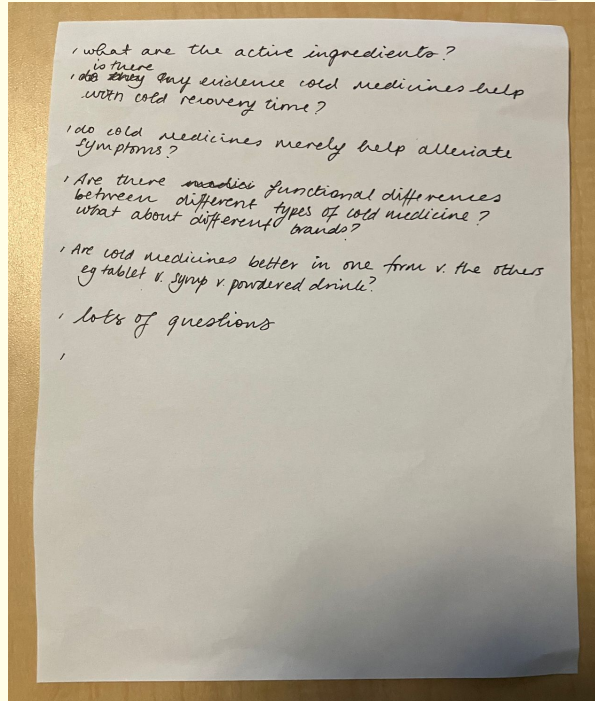 , what are the active ingredients?
is there
, do they any evidence cold medicines help
with cold recovery time?
, do cold medicines merely help alleviate
symptoms?
, Are there medici functional differences
between different types of cold medicine?
what about different brands?
, Are cold medicines better in one form v. the others
eg tablet v. syrup v. powdered drink?
, lots of questions
,